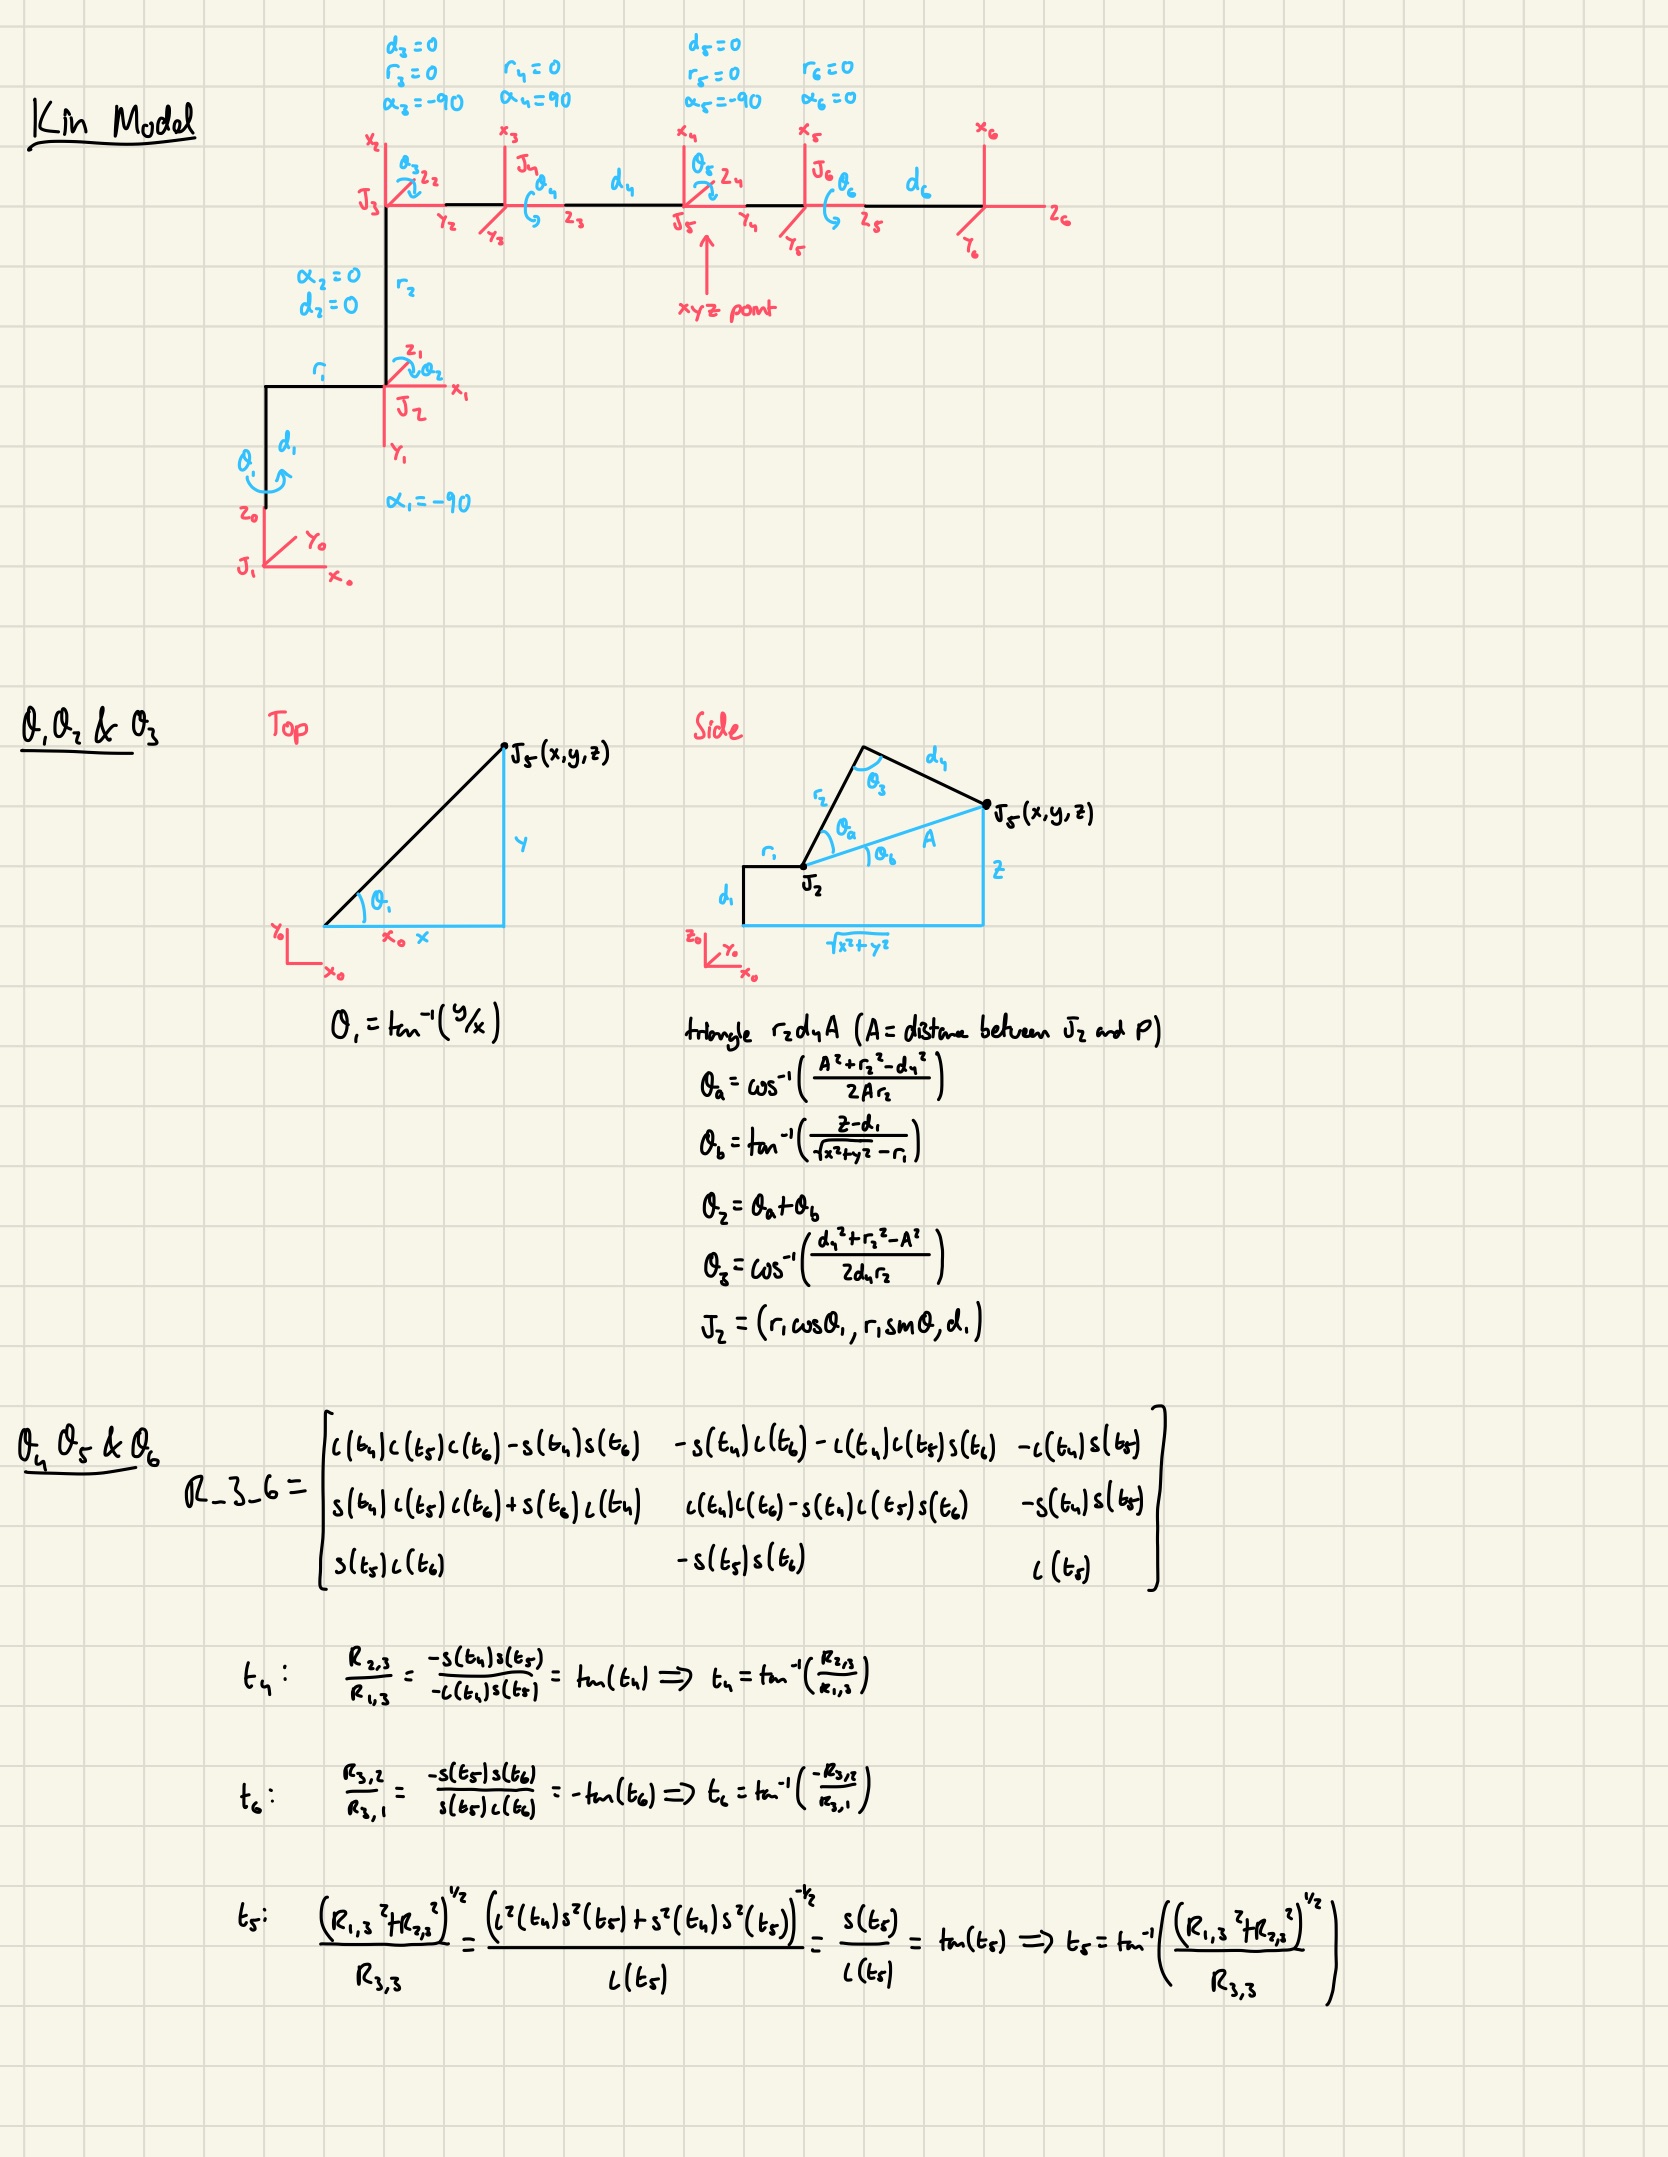 Kin Model
d₃=0
r₃=0
α₃=-90
r₄=0
α₄=90
d₅=0
r₅=0
α₅=-90
r₆=0
α₆=0
x₂ x₃ x₄ x₅ x₆
J₃ θ₃ z₂ y₂ J₄ θ₄ y₃ z₃ d₄ θ₅ z₄ J₅ y₄ J₆ θ₆ y₅ z₅ d₆ y₆ z₆
xyz point
α₂=0
d₂=0
r₂
r₁ z₁ θ₂ x₁
J₂
θ₁ d₁ y₁
α₁=-90
z₀
y₀
J₁ x₀
θ₁ θ₂ & θ₃
Top
J₅(x,y,z)
y
θ₁
y₀ x₀ x
x₀
θ₁ = tan⁻¹(y/x)
Side
d₄
θ₃
r₂
J₅(x,y,z)
θa A
r₁ θb
J₂ z
d₁
z₀ y₀ √x²+y²
x₀
triangle r₂d₄A (A = distance between J₂ and P)
θa = cos⁻¹((A²+r₂²-d₄²)/(2Ar₂))
θb = tan⁻¹((z-d₁)/(√x²+y² - r₁))
θ₂ = θa+θb
θ₃ = cos⁻¹((d₄²+r₂²-A²)/(2d₄r₂))
J₂ = (r₁cosθ₁, r₁sinθ, d₁)
θ₄ θ₅ & θ₆
R_3_6 =
c(t₄)c(t₅)c(t₆)-s(t₄)s(t₆) -s(t₄)c(t₆)-c(t₄)c(t₅)s(t₆) -c(t₄)s(t₅)
s(t₄)c(t₅)c(t₆)+s(t₆)c(t₄) c(t₄)c(t₆)-s(t₄)c(t₅)s(t₆) -s(t₄)s(t₅)
s(t₅)c(t₆) -s(t₅)s(t₆) c(t₅)
t₄: R₂,₃/R₁,₃ = -s(t₄)s(t₅)/-c(t₄)s(t₅) = tan(t₄) ⇒ t₄ = tan⁻¹(R₂,₃/R₁,₃)
t₆: R₃,₂/R₃,₁ = -s(t₅)s(t₆)/s(t₅)c(t₆) = -tan(t₆) ⇒ t₆ = tan⁻¹(-R₃,₂/R₃,₁)
t₅: (R₁,₃²+R₂,₃²)^1/2/R₃,₃ = (c²(t₄)s²(t₅)+s²(t₄)s²(t₅))^-1/2/c(t₅) = s(t₅)/c(t₅) = tan(t₅) ⇒ t₅ = tan⁻¹((R₁,₃²+R₂,₃²)^1/2/R₃,₃)